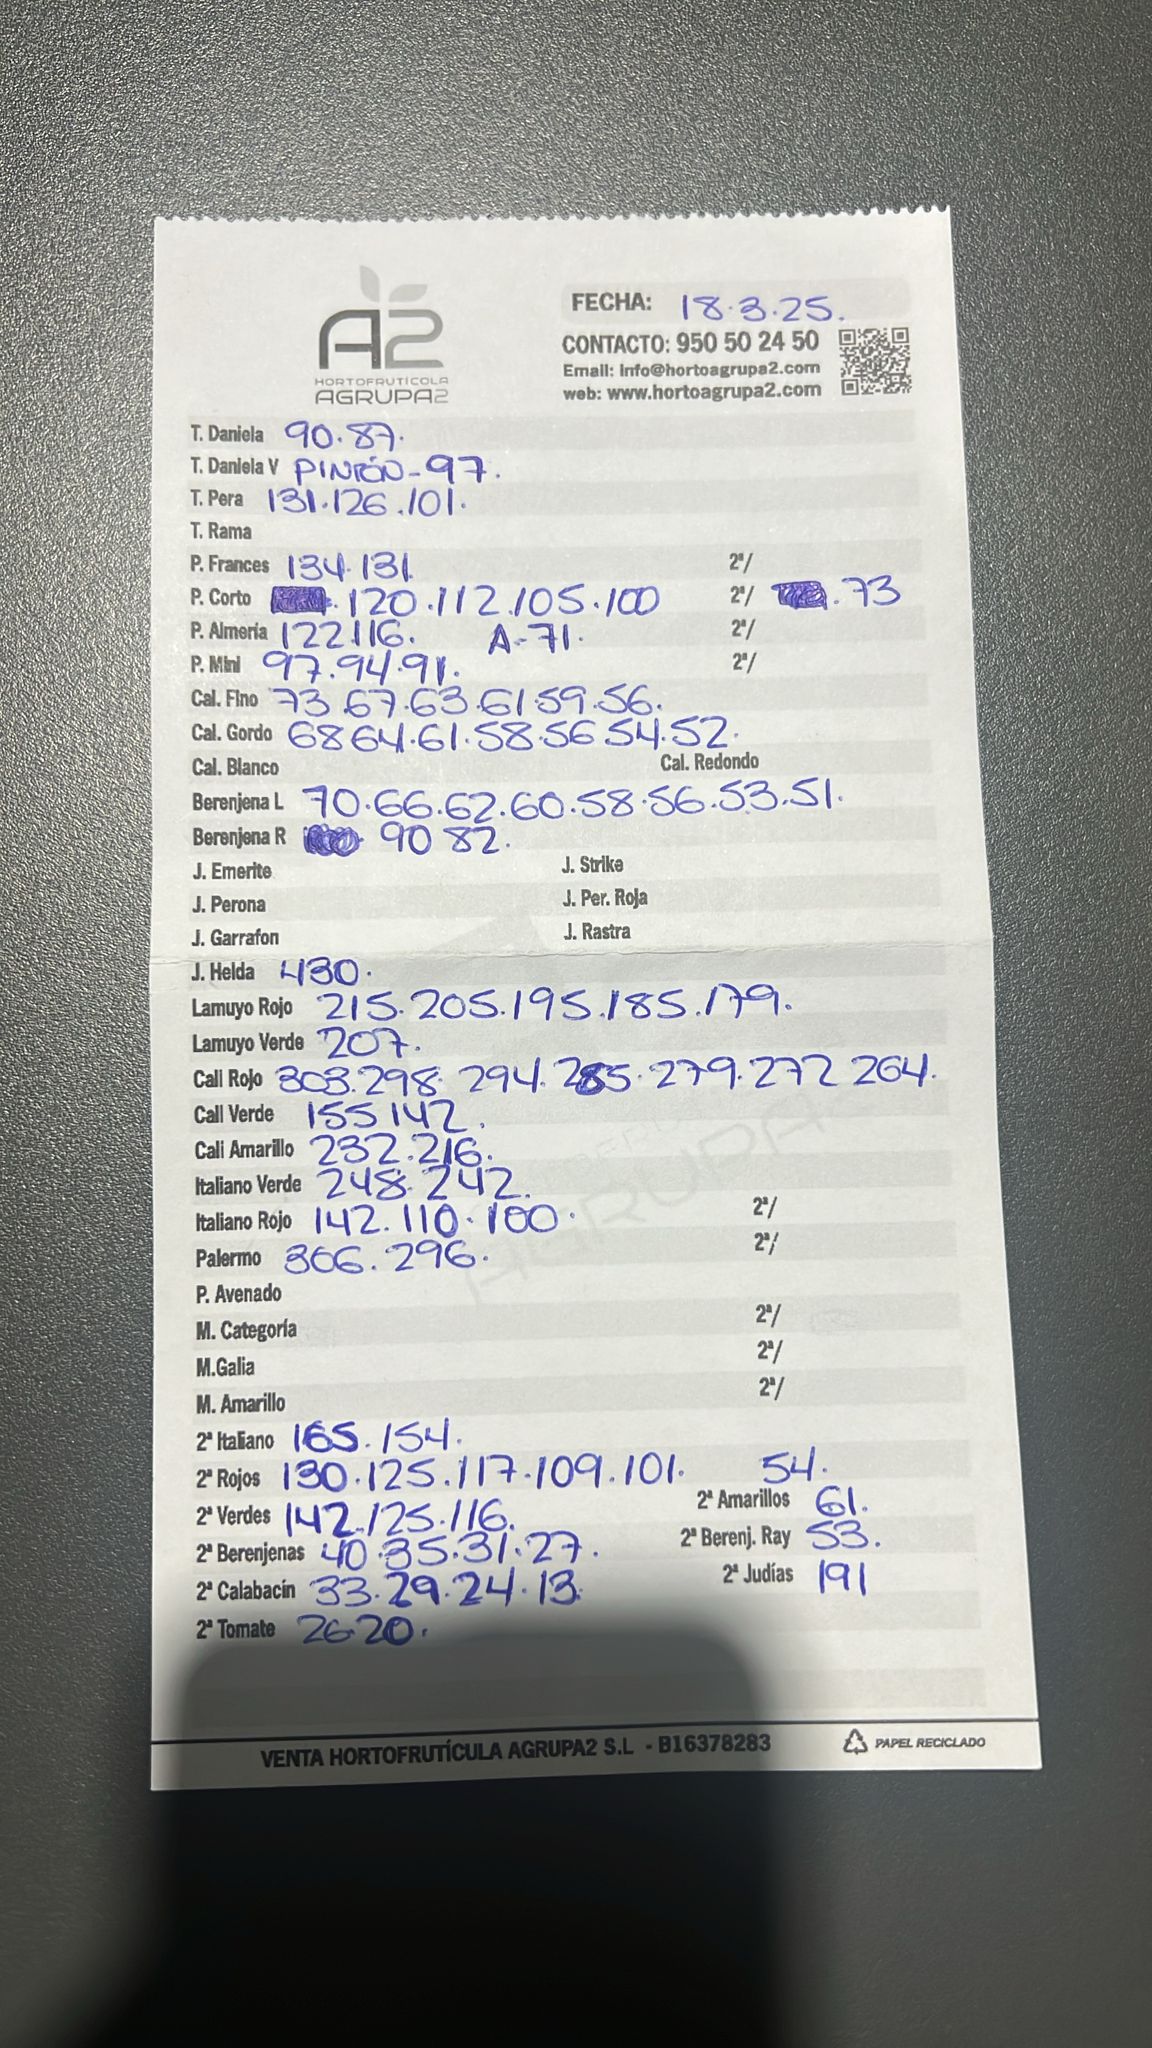 A2
HORTOFRUTÍCOLA
AGRUPA2
FECHA: 18.3.25.
CONTACTO: 950 50 24 50
Email: info@hortoagrupa2.com
web: www.hortoagrupa2.com
T. Daniela 90.87.
T. Daniela V PINTÓN-97.
T. Pera 131.126.101.
T. Rama
P. Frances 134.131 2ª/
P. Corto .120.112.105.100 2ª/ .73
P. Almería 122116. A-71. 2ª/
P. Mini 97.94.91. 2ª/
Cal. Fino 73.67.63.61.59.56.
Cal. Gordo 68 64.61.58.56 54.52.
Cal. Blanco Cal. Redondo
Berenjena L 70.66.62.60.58.56.53.51.
Berenjena R 90 82.
J. Emerite J. Strike
J. Perona J. Per. Roja
J. Garrafon J. Rastra
J. Helda 430.
Lamuyo Rojo 215.205.195.185.179.
Lamuyo Verde 207.
Cali Rojo 303.298. 294.285.279.272 264.
Cali Verde 155 142.
Cali Amarillo 232.216.
Italiano Verde 248.242.
Italiano Rojo 142.110.100. 2ª/
Palermo 306.296. 2ª/
P. Avenado
M. Categoría 2ª/
M.Galia 2ª/
M. Amarillo 2ª/
2ª Italiano 165.154.
2ª Rojos 130.125.117.109.101. 54.
2ª Verdes 142.125.116. 2ª Amarillos 61.
2ª Berenjenas 40.35.31.27. 2ª Berenj. Ray 53.
2ª Calabacín 33.29.24.13. 2ª Judías 191
2ª Tomate 26.20.
VENTA HORTOFRUTÍCULA AGRUPA2 S.L - B16378283 PAPEL RECICLADO